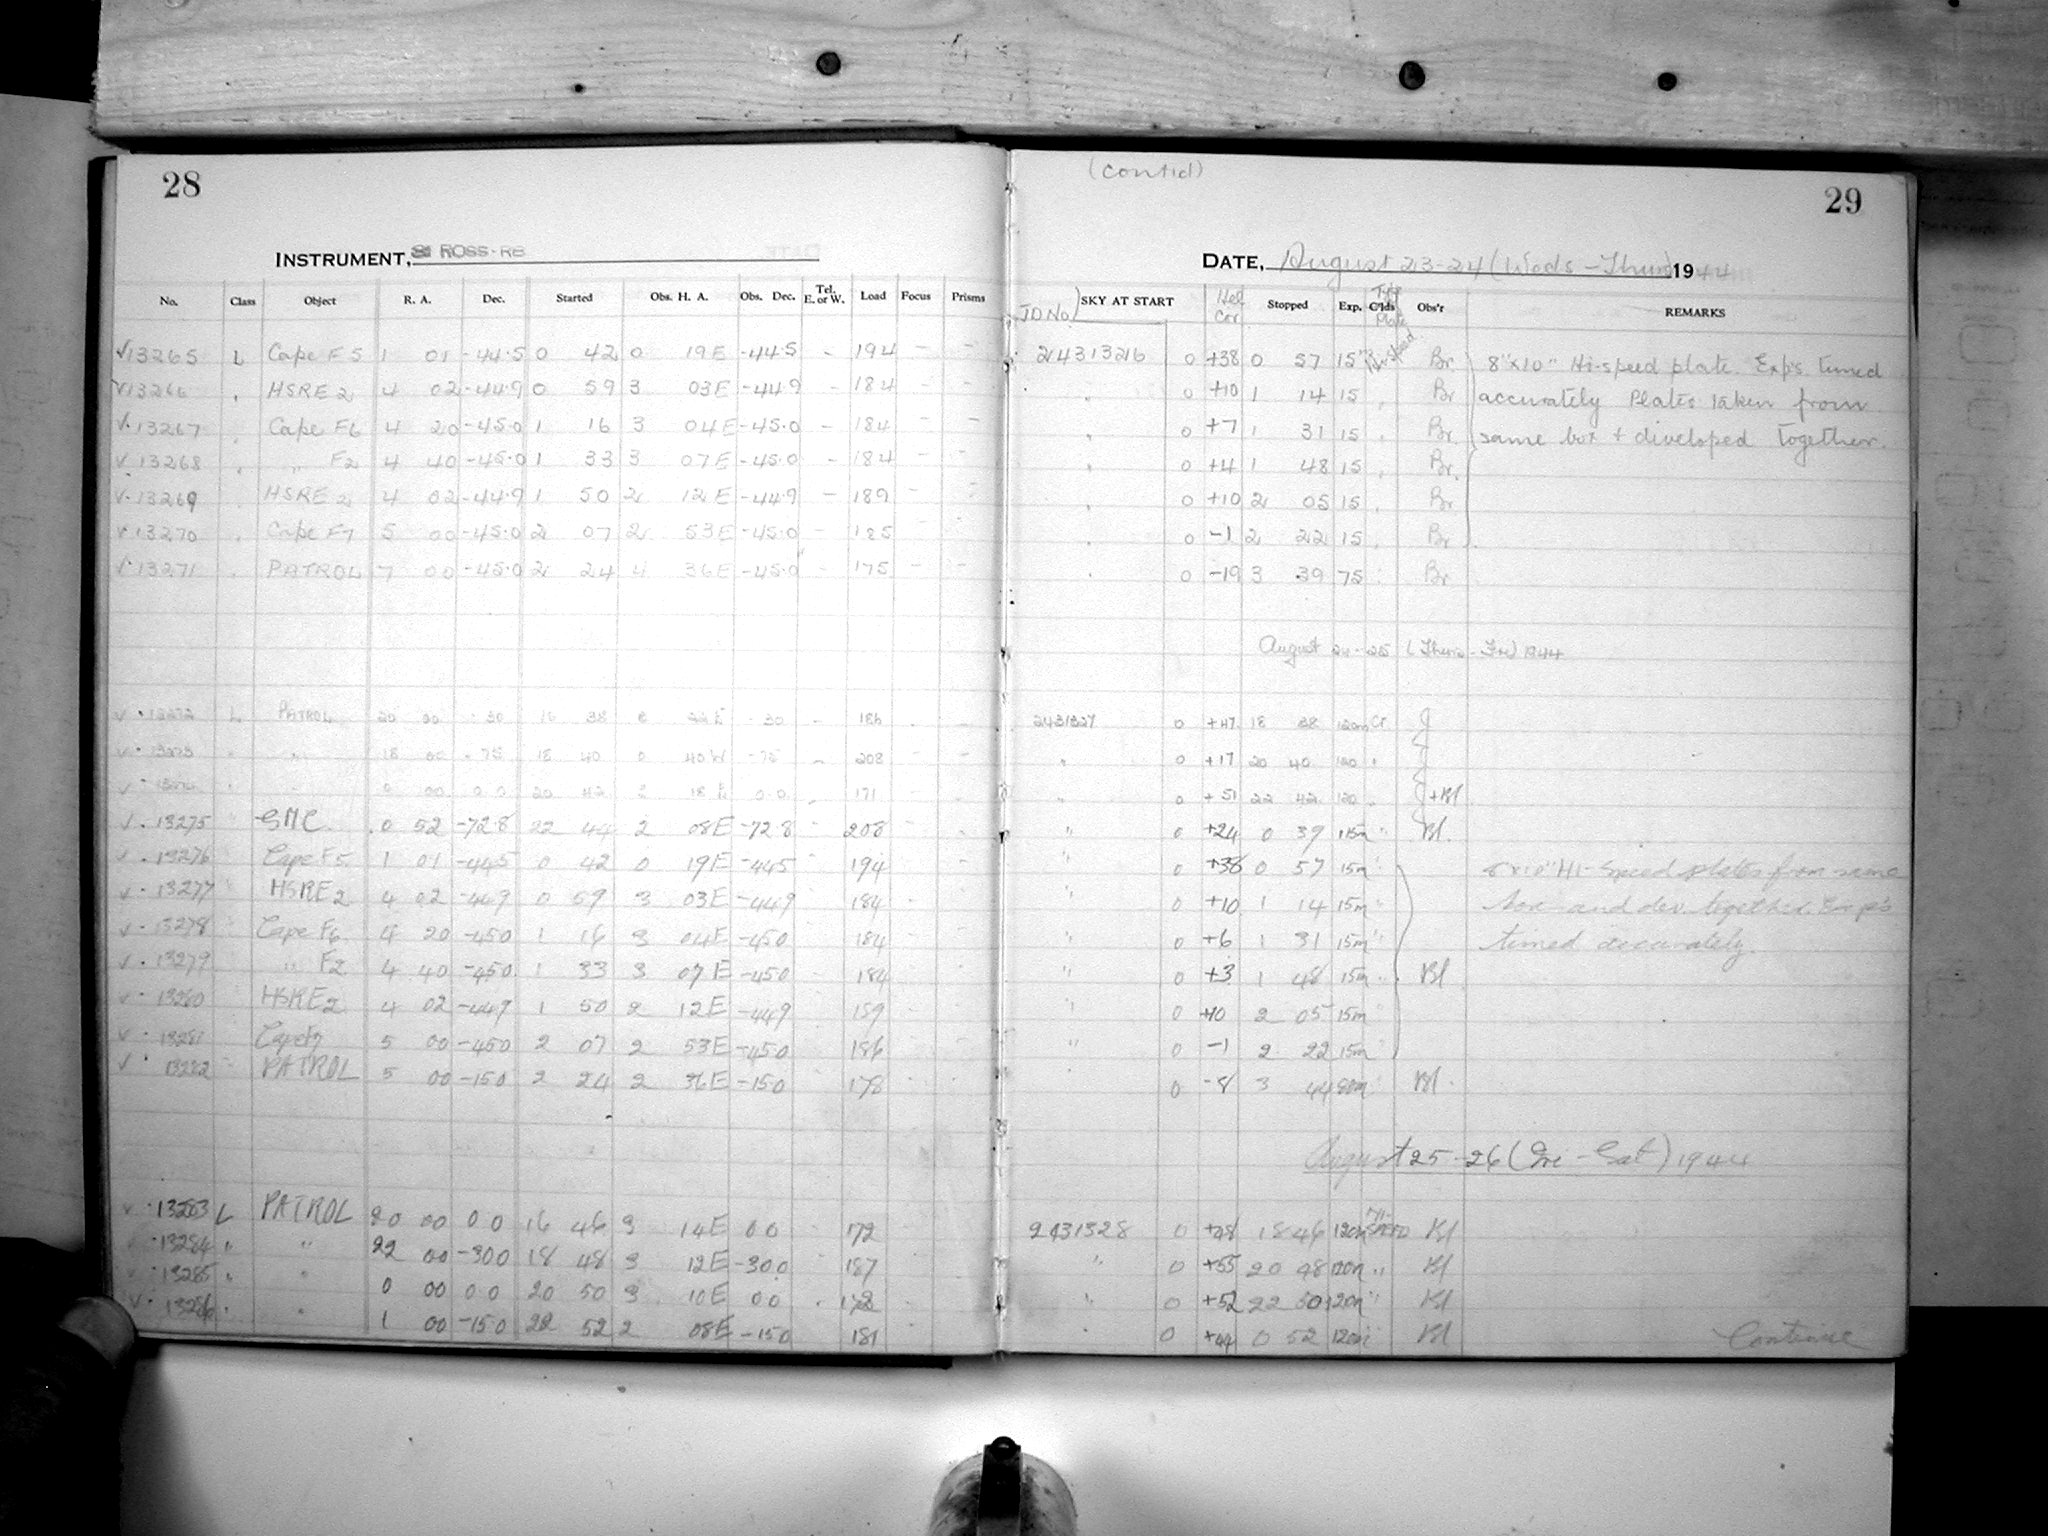 (contd)
28
29
INSTRUMENT, ROSS-RB
DATE, August 23-24 (Weds-Thur) 1944
No. Class Object R. A. Dec. Started Obs. H. A. Obs. Dec. Tel. E. or W. Load Focus Prisms JD No SKY AT START Hel Cor Stopped Exp. Obs'r REMARKS
√13265 L Cape F5 1 01 -44.5 0 42 0 19E -44.5 - 194 - - 0 +38 0 57 15m Hi-speed Br 8"x10" Hi-speed plate. Exps timed
√13266 HSRE2 4 02 -44.9 0 59 3 03E -44.9 - 184 - - " 0 +10 1 14 15 Br accurately Plates taken from
√13267 Cape F6 4 20 -45.0 1 16 3 04E -45.0 - 184 - - " 0 +7 1 31 15 Br. same box + diveloped together.
√13268 " F2 4 40 -45.0 1 33 3 07E -45.0 - 184 - - " 0 +4 1 48 15 Br.
√13269 HSRE2 4 02 -44.9 1 50 2 12E -44.9 - 189 - - " 0 +10 2 05 15 Br
√13270 Cape F7 5 00 -45.0 2 07 2 53E -45.0 - 185 - - " 0 -1 2 22 15 Br
√13271 PATROL 7 00 -45.0 2 24 4 36E -45.0 - 175 - - " 0 -19 3 39 75 Br
August 24-25 (Thurs-Fri) 1944
√13272 L PATROL 20 00 -30 16 38 22E -30 - 186 - - 2431327 0 +47 18 38 120m Cr J
√13273 " 18 00 -75 18 40 0 40W -75 - 208 - - " 0 +17 20 40 120 " J
√ " 0 00 0.0 20 42 2 18E 0.0 171 " 0 +51 22 42 120 J+Bl
√13275 SMC 0 52 -72.8 22 44 2 08E -72.8 208 " 0 +24 0 39 115m " Bl.
√13276 Cape F5 1 01 -445 0 42 0 19E -445 194 " 0 +38 0 57 15m " 8x10" Hi-Speed plates from same
√13277 HSRE2 4 02 -449 0 59 3 03E -449 184 " 0 +10 1 14 15m " box and dev. together. Exp's
√13278 Cape F6 4 20 -450 1 16 3 04E -450 184 " 0 +6 1 31 15m " timed accurately.
√13279 " F2 4 40 -450 1 33 3 07E -450 184 " 0 +3 1 48 15m " Bl
√13280 HSRE2 4 02 -449 1 50 2 12E -449 " 0 +10 2 05 15m
√13281 Cape F7 5 00 -450 2 07 2 53E -450 186 " 0 -1 2 22 15m "
√13282 PATROL 5 00 -150 2 24 2 36E -150 178 0 -8 3 44 80m " Bl
August 25-26 (Fri-Sat) 1944
√13283 L PATROL 20 00 00 16 46 3 14E 00 172 2431328 0 +48 18 46 120m HI-SPEED Bl
√13284 " " 22 00 -300 18 48 3 12E -300 187 " 0 +55 20 48 120m " Bl
√13285 " " 0 00 00 20 50 3 10E 00 178 " 0 +52 22 50 120m " Bl
√13286 " " 1 00 -150 22 52 2 08E -150 181 0 +44 0 52 120m Bl Continue